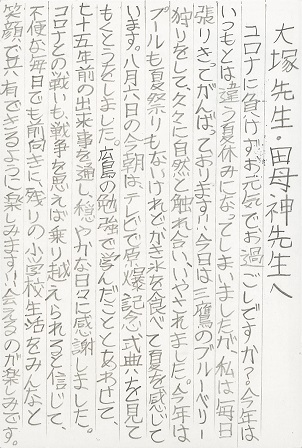 大塚先生・田母神先生へ
コロナに負けずお元気でお過ごしですか?今年は
いつもとは違う夏休みになってしまいましたが、私は毎日
張りきってがんばっております!!今日は三鷹のブルーベリー
狩りをして、久々に自然と触れ合い、いやされました。今年は
プールも夏祭りもないけれどかき氷を食べて夏を感じて
います。八月六日の今朝はテレビで原爆記念式典を見て
もくとうをしました。広島の勉強で学んだこととあわせて、
七十五年前の出来事を通し、穏やかな日々に感謝しました。
コロナとの戦いも、戦争を思えば乗り越えられると信じて、
不便な毎日でも前向きに、残りの小学校生活をみんなと
笑顔で共有できるように楽しみます!!会えるのが楽しみです。